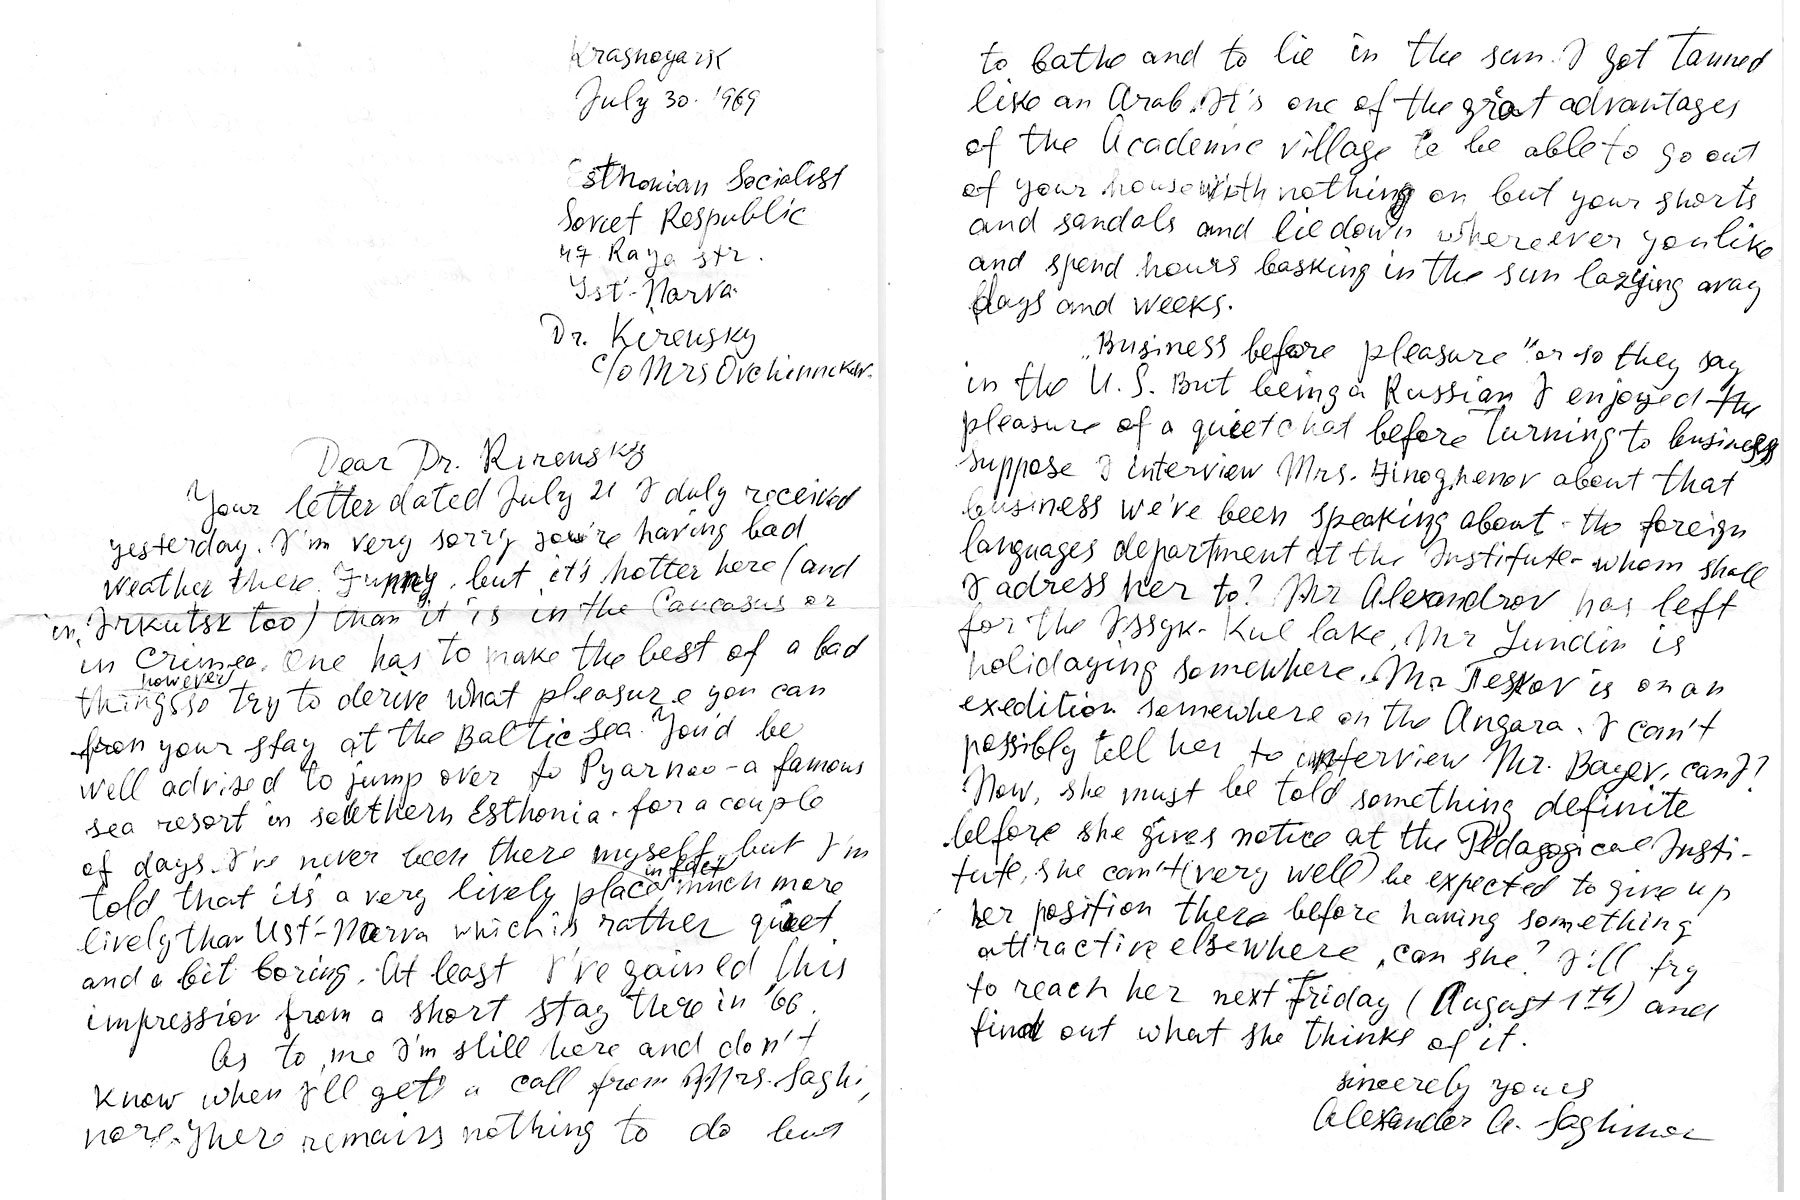 Krasnoyarsk
July 30. 1969
Esthonian Socialist
Soviet Respublic
47 Raya str.
Ust'-Narva
Dr. Kirensky
c/o Mrs Ovchinnikov.
Dear Dr. Kirensky
Your letter dated July 21 I duly received
yesterday. I'm very sorry you're having bad
weather there. Funny, but it's hotter here (and
in Irkutsk too) than it is in the Caucasus or
in Crimea. One has to make the best of a bad
however
things so try to derive what pleasure you can
from your stay at the Baltic sea. You'd be
well advised to jump over to Pyarnoo - a famous
sea resort in southern Esthonia - for a couple
of days. I've never been there myself but I'm
in fact
told that it's a very lively place much more
lively than Ust'-Narva which is rather quiet
and a bit boring. At least I've gained this
impression from a short stay there in '66.
As to me I'm still here and don't
know when I'll get a call from Mrs. Saghi,
nore. There remains nothing to do but
to bathe and to lie in the sun. I got tanned
like an Arab. It's one of the great advantages
of the Academic village to be able to go out
of your house with nothing on but your shorts
and sandals and lie down whereever you like
and spend hours basking in the sun lazying away
days and weeks.
„Business before pleasure" or so they say
in the U.S. But being a Russian I enjoyed the
pleasure of a quiet chat before turning to business
suppose I interview Mrs. Finoghenov about that
business we've been speaking about - the foreign
languages department at the Institute - whom shall
I adress her to? Mr Alexandrov has left
for the Issyk-Kul lake, Mr Lundin is
holidaying somewhere. Mr Teskov is on an
exedition somewhere on the Angara. I can't
possibly tell her to interview Mr. Bayev, can I?
Now, she must be told something definite
before she gives notice at the Pedagogical Insti-
tute, she can't (very well) be expected to give up
her position there before having something
attractive elsewhere, can she? I'll try
to reach her next Friday (August 1th) and
find out what she thinks of it.
sincerely yours
Alexander A. Saghinor